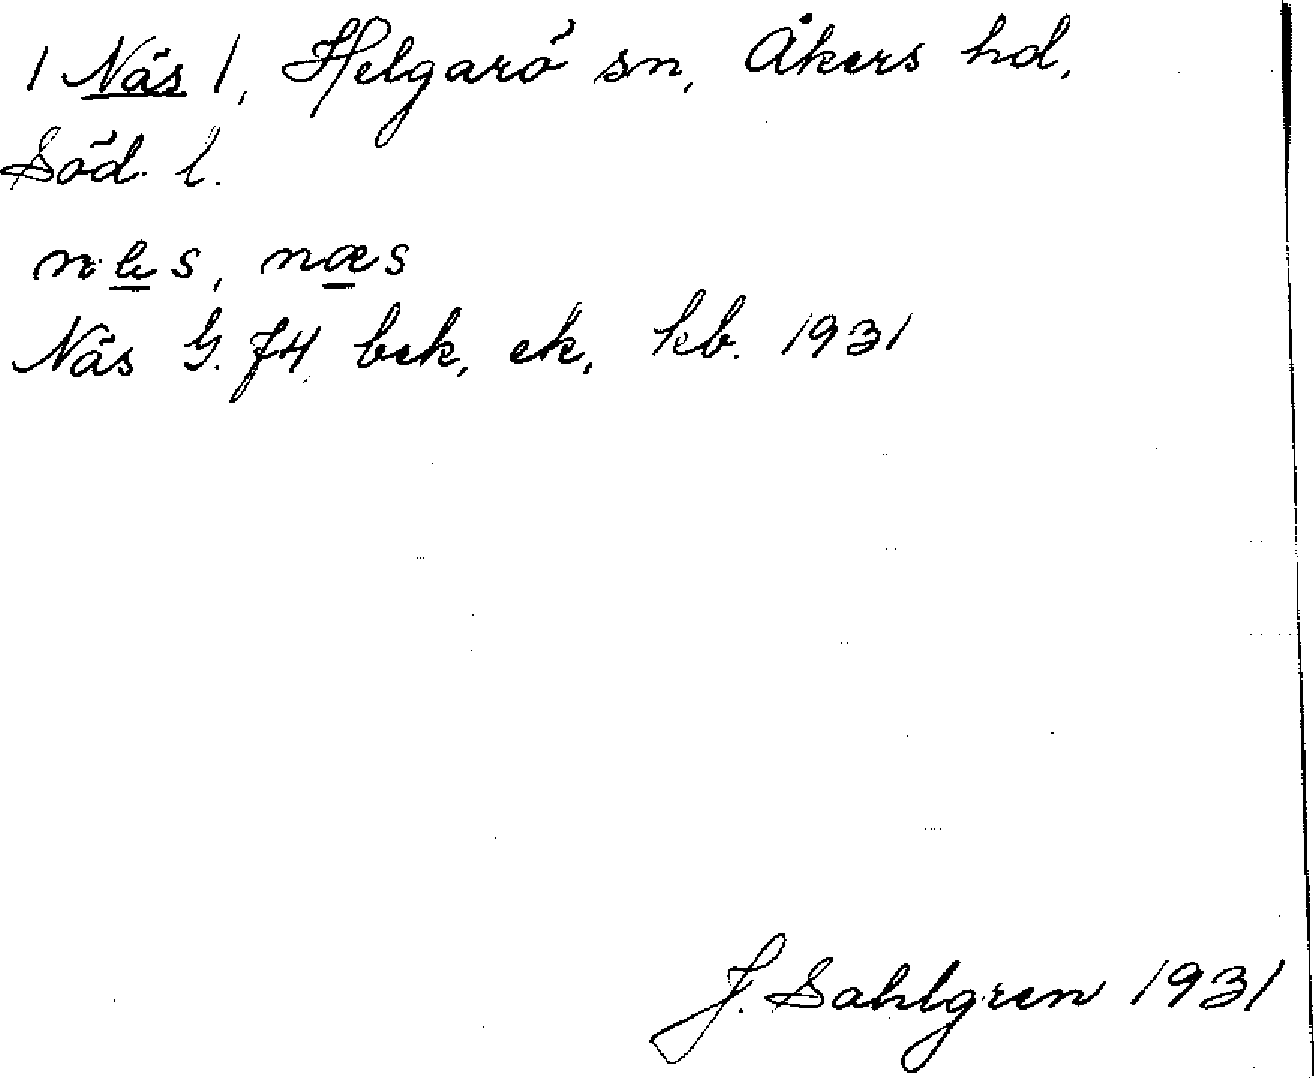 / Näs /, Helgarö sn, Åkers hd,
Söd. l.
næs
Näs G. J4 bek, ek, kb. 1931
J. Sahlgren 1931